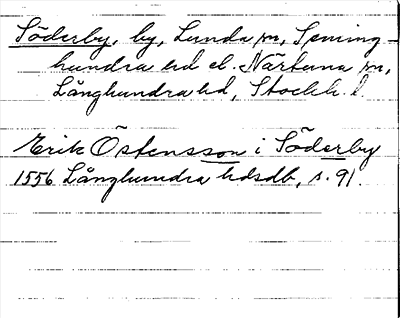 Söderby, by, Lunda sn, Seming-
hundra hd el. Närtuna sn,
Långhundra hd, Stockh. l
Erik Östensson i Söderby
1556 Långhundra hdsdb, s. 91.